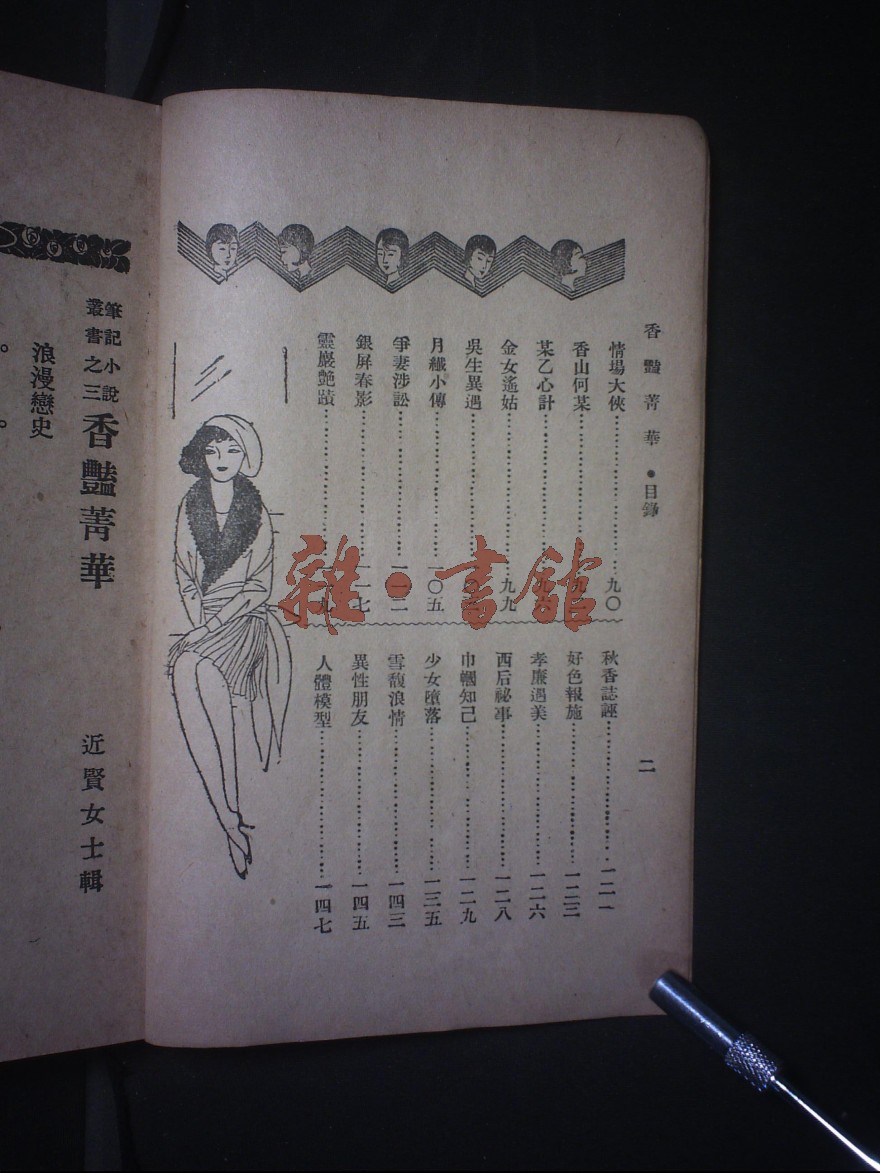 香豔菁華•目錄
二
情場大俠……九〇
香山何某……九
某乙心計……九
金女遙姑……九九
吳生異遇……
月纖小傳……一〇五
爭妻涉訟……一一二
銀屏春影……一一七
靈巖艷蹟……一一九
秋香誌誣……一二一
好色報施……一二三
孝廉遇美……一二六
西后祕事……一二八
巾幗知己……一二九
少女墮落……一三五
雪馥浪情……一四三
異性朋友……一四五
人體模型……一四七
筆記小說
叢書之三
香豔菁華
近賢女士輯
浪漫戀史
雜•書館